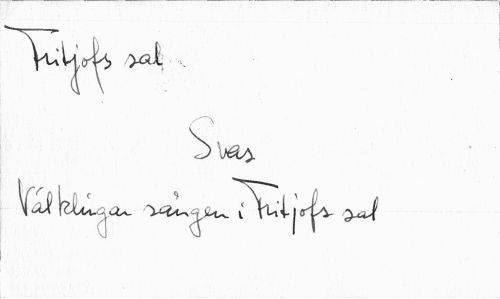 Fritjofs sal
Svar
Välklingar sången i Fritjofs sal